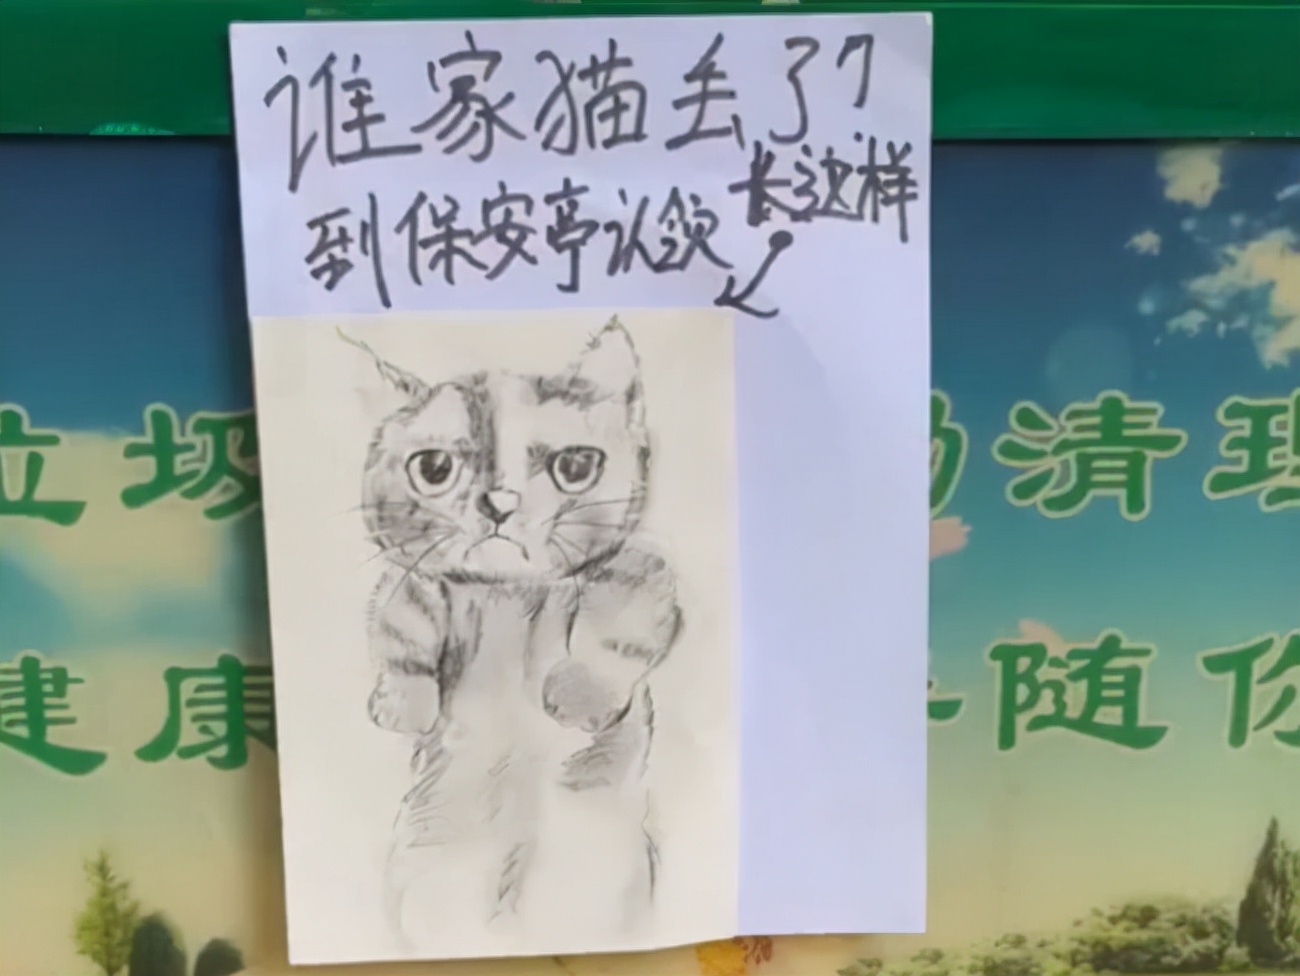 谁家猫丢了?
长这样
到保安亭认领
垃圾
清理
健康
随你